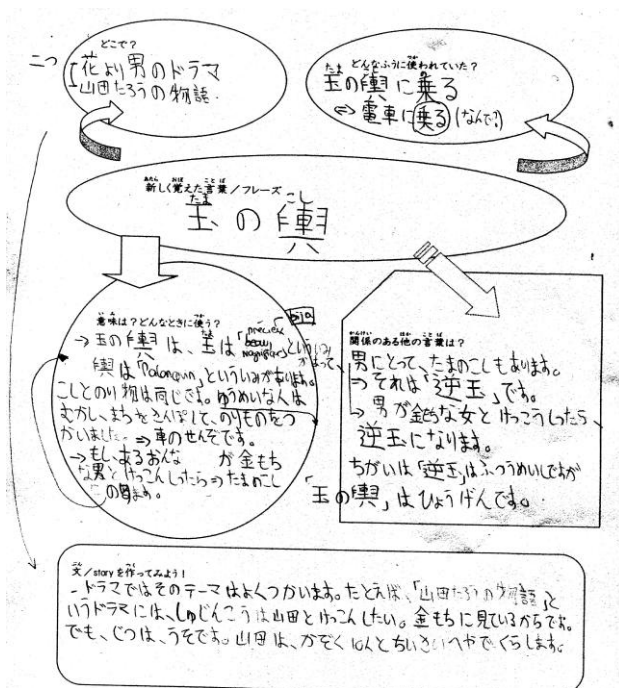 どこで?
二つ
花より男のドラマ
山田たろうの物語
どんなふうに使われていた?
玉の輿に乗る
⇔ 電車に乗る(なんで?)
新しく覚えた言葉/フレーズ
玉の輿
意味は?どんなときに使う?
→玉の輿は、玉は「précieux beau magnifique」といういみ
があって、
bijou
輿は「Palanquin」といういみがあります。
こしとのり物は同じです。ゆうめいな人は
むかし、まちをさんぽして、のりものをつ
かいました ⇒ 車のせんぞです。
→もし、あるおんな が金もち
な男とけっこんしったら⇒たまのこし
のります。
関係のある他の言葉は?
男にとって、たまのこしもあります。
⇒それは「逆玉」です。
→男が金もちな女とけっこうしったら、
逆玉になります。
ちがいは「逆玉」はふつうめいしですが
「玉の輿」はひょうげんです。
文/storyを作ってみよう!
-ドラマではそのテーマはよくつかいます。たとえば、「山田たろうの物語」と
いうドラマには、しゅじんこうは山田とけっこんしたい。金もちに見ているからです。
でも、じつは、うそです。山田は、かぞく10人とちいさいへやでくらします。